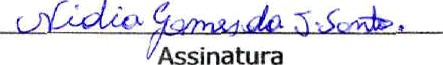 Nidia Gomes da S. Santo.
Assinatura